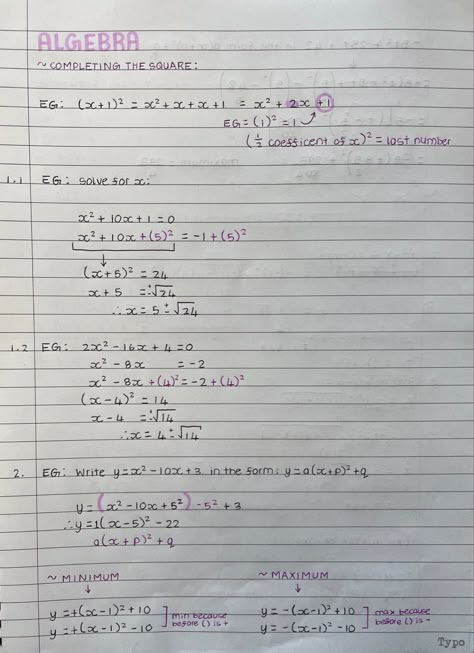 ALGEBRA
~ COMPLETING THE SQUARE:
EG: (x+1)² = x² + x + x + 1 = x² + 2x + 1
EG = (1)² = 1
(½ coefficent of x)² = last number
1.1 EG: solve for x:
x² + 10x + 1 = 0
x² + 10x + (5)² = -1 + (5)²
(x+5)² = 24
x + 5 = ±√24
∴ x = 5 ± √24
1.2 EG: 2x² - 16x + 4 = 0
x² - 8x = -2
x² - 8x + (4)² = -2 + (4)²
(x-4)² = 14
x - 4 = ±√14
∴ x = 4 ± √14
2. EG: Write y = x² - 10x + 3 in the form: y = a(x+p)² + q
y = (x² - 10x + 5²) - 5² + 3
∴ y = 1(x-5)² - 22
a(x+p)² + q
~ MINIMUM
~ MAXIMUM
y = +(x-1)² + 10
y = +(x-1)² - 10
min because
before () is +
y = -(x-1)² + 10
y = -(x-1)² - 10
max because
before () is -
Typo